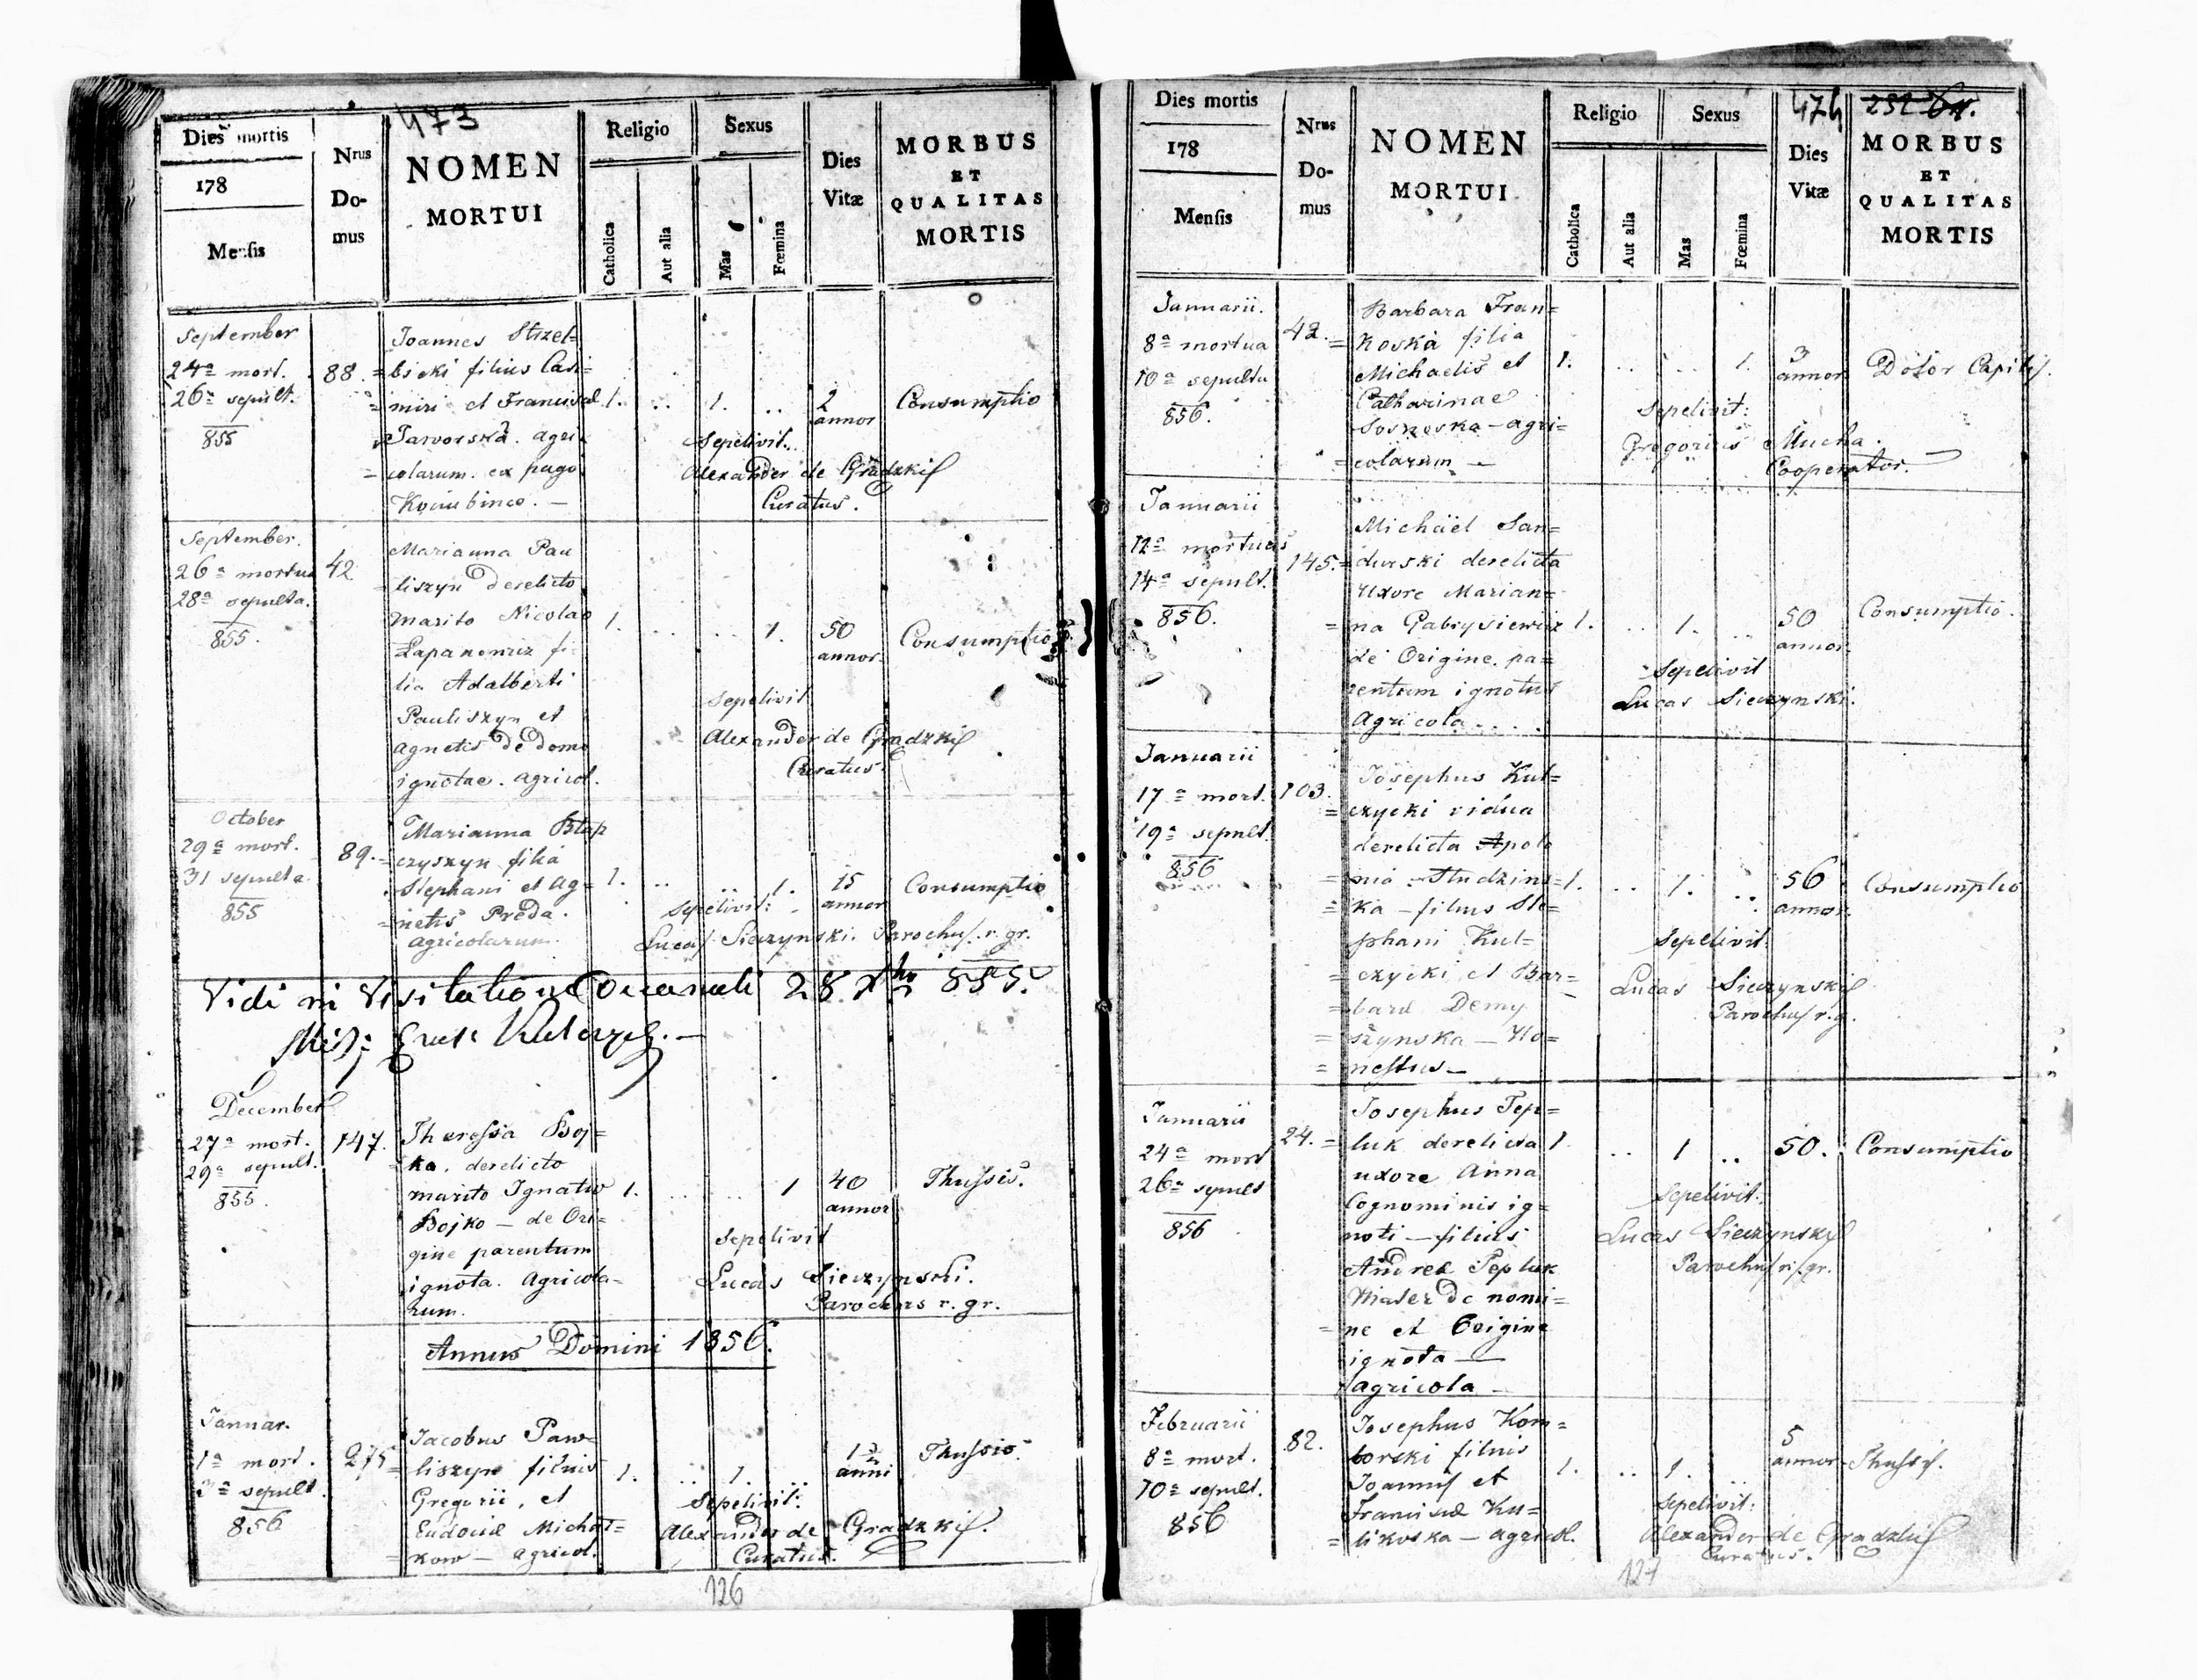 473
Dies mortis
178
Mensis
Nrus
Do-
mus
NOMEN
MORTUI
Religio
Catholica
Aut alia
Sexus
Mas
Fœmina
Dies
Vitæ
MORBUS
ET
QUALITAS
MORTIS
September
24a mort.
26a sepult.
855
88
Joannes Strzel=
bicki filius Casi=
miri et Franciscæ
Jaworska. agri=
colarum. ex pago
1. .. 1. ..
2
annor
Consumptio
Sepelivit.
Alexander de Gradzkis
Curatus.
September.
26a mortua
28a sepulta.
855.
42
Marianna Pau
liszyn derelicto
marito Nicolao
fi=
lia Adalberti
Pauliszyn et
agnetis de domo
ignotae. agricol.
1. .. .. 1.
50
annor.
Consumptio
Sepelivit
Alexander de Gradzkis
Curatus.
October
29a mort.
31 sepulta
855
89.
Marianna
czyszyn filia
Stephani et Ag=
netis Preda.
agricolarum.
1. .. .. 1.
15
annor
Consumptio
Sepelivit:
Lucas Sieczynski. Parochus r. gr.
Vidi in Visitatione Decanali 28 855.
December
27a mort.
29a sepult.
855.
147.
Theressa Boj=
ka. derelicto
marito Ignatio
Bojko — de Ori=
gine parentum
ignota. Agricola=
rum.
1. .. .. 1
40
annor
Thussis.
Sepelivit
Lucas Sieczynski.
Parochus r. gr.
Annus Domini 1856.
Januar.
1a mort.
3a sepult.
856
275
Jacobus Paw=
liszyn filius
Gregorii, et
Eudociæ Michał=
kow — agricol.
1. .. 1. ..
anni
Thussis.
Sepelivit:
Alexander de Gradzkis.
Curatus.
126
474
Dies mortis
178
Mensis
Nrus
Do-
mus
NOMEN
MORTUI
Religio
Catholica
Aut alia
Sexus
Mas
Fœmina
Dies
Vitæ
MORBUS
ET
QUALITAS
MORTIS
Januarii.
8a mortua
10a sepulta
856.
42.
Barbara Fran=
koska filia
Michaelis et
Catharinae
Sosnoska — agri=
colarum —
1. .. .. 1.
3
annor
Dolor Capitis.
Sepelivit:
Gregorius Mucha.
Cooperator.
Januarii
12a mortuus
14a sepult.
856.
145.
Michäel San=
durski derelicta
Uxore Marian=
na Gabrysiewicz
de Origine. pa=
rentum ignotus
Agricola....
1. .. 1. ..
50
annor.
Consumptio.
Sepelivit
Lucas Sieczynski.
Januarii
17a mort.
19a sepult.
856
103.
Josephus Kul=
czycki vidua
derelicta Apolo
nia Studzins=
ka — filius Ste=
phani Kul=
czycki et Bar=
baræ Demy
szynska — Ho=
nestus —
1. .. 1. ..
56
annor.
Consumptio
Sepelivit:
Lucas Sieczynskis
Parochus r. g.
Januarii
24a mort
26a sepult
856
24.
Josephus Tep=
luk derelicta
uxore Anna
Cognominis ig=
noti — filius
Andrea Tepluk
Mater de nomi=
ne et Origine
ignota —
agricola —
1. .. 1 ..
50.
Consumptio
Sepelivit:
Lucas Sieczynskis
Parochus r. gr.
Februarii
8a mort.
10a sepult.
856
82.
Josephus Kom=
borski filius
Joannis et
Franciscæ Ku=
likoska — agricol.
1. .. 1. ..
5
annor
Thussis.
Sepelivit:
Alexander de Gradzkis
Curatus.
127